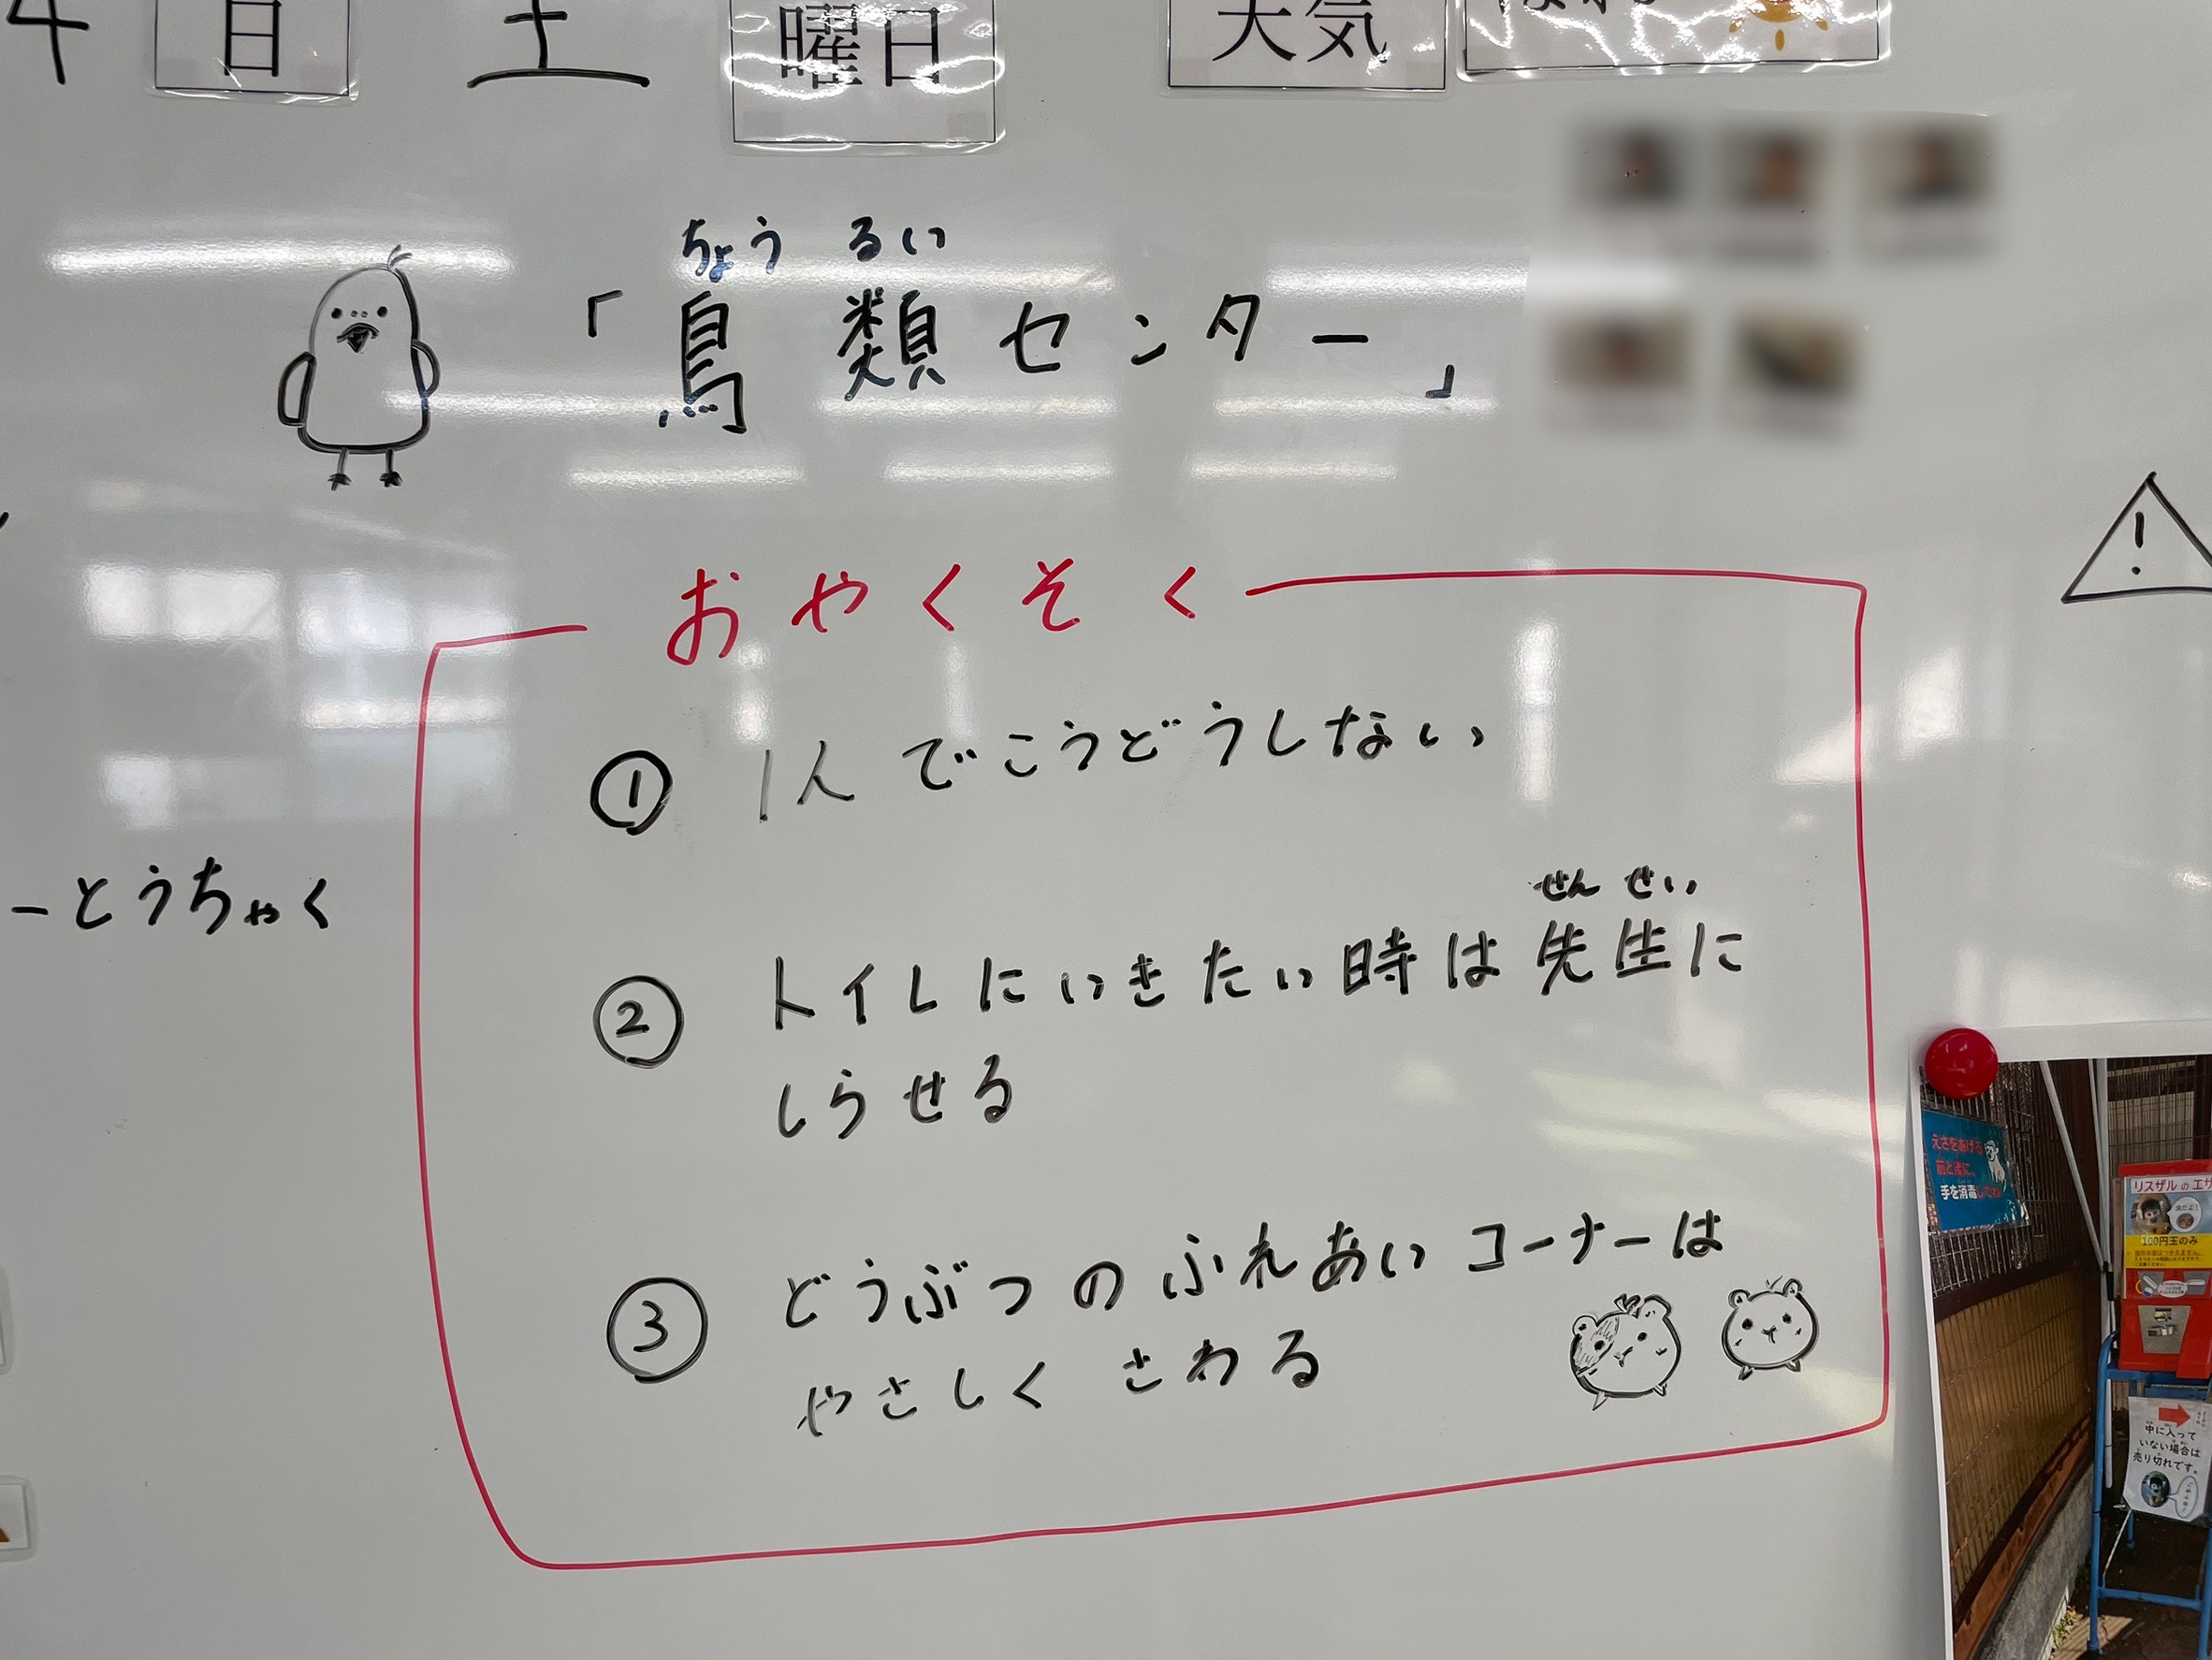 4 日 土 曜日 天気
ちょう るい
「鳥類センター」
おやくそく
① 1人でこうどうしない
せん せい
② トイレにいきたい時は先生に
しらせる
ーとうちゃく
③ どうぶつのふれあいコーナーは
やさしくさわる
!
えさをあげる
前と後に、
手を消毒してね
リスザルのエサ
100円玉のみ
中に入って
いない場合は
売り切れです。